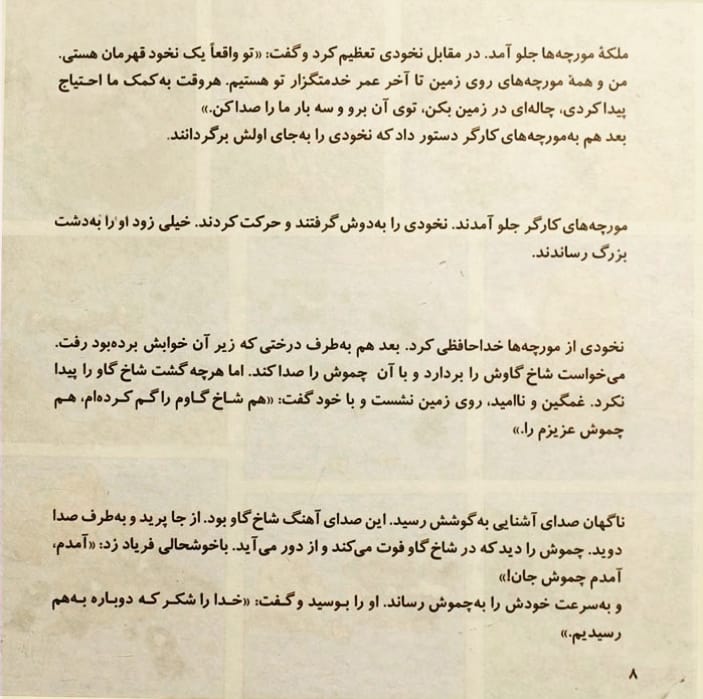 ملکهٔ مورچه‌ها جلو آمد. در مقابل نخودی تعظیم کرد و گفت: «تو واقعاً یک نخود قهرمان هستی.
من و همهٔ مورچه‌های روی زمین تا آخر عمر خدمتگزار تو هستیم. هروقت به کمک ما احتیاج
پیدا کردی، چاله‌ای در زمین بکن، توی آن برو و سه بار ما را صدا کن.»
بعد هم به‌مورچه‌های کارگر دستور داد که نخودی را به‌جای اولش برگردانند.
مورچه‌های کارگر جلو آمدند. نخودی را به‌دوش گرفتند و حرکت کردند. خیلی زود او را به‌دشت
بزرگ رساندند.
نخودی از مورچه‌ها خداحافظی کرد. بعد هم به‌طرف درختی که زیر آن خوابش برده‌بود رفت.
می‌خواست شاخ گاوش را بردارد و با آن چموش را صدا کند. اما هرچه گشت شاخ گاو را پیدا
نکرد. غمگین و ناامید، روی زمین نشست و با خود گفت: «هم شاخ گاوم را گم کرده‌ام، هم
چموش عزیزم را.»
ناگهان صدای آشنایی به گوشش رسید. این صدای آهنگ شاخ گاو بود. از جا پرید و به‌طرف صدا
دوید. چموش را دید که در شاخ گاو فوت می‌کند و از دور می‌آید. باخوشحالی فریاد زد: «آمدم،
آمدم چموش جان!»
و به‌سرعت خودش را به‌چموش رساند. او را بوسید و گفت: «خدا را شکر که دوباره به‌هم
رسیدیم.»
۸